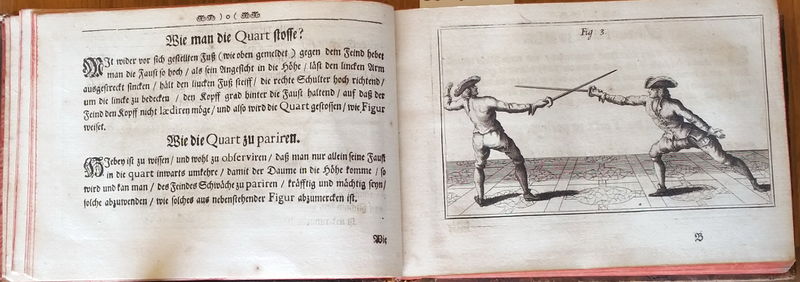 ) o (
Wie man die Quart stosse?
MIt wider vor sich gestelltem Fuß (wie oben gemeldet) gegen dem Feind hebet
man die Faust so hoch / als sein Angesicht in die Höhe / läst den lincken Arm
ausgestreckt sincken / hält den lincken Fuß steiff / die rechte Schulter hoch richtend /
um die lincke zu bedecken / den Kopff grad hinter die Faust haltend / auf daß der
Feind den Kopff nicht lædiren möge / und also wird die Quart gestossen / wie Figur
weiset.
Wie die Quart zu pariren.
HIebey ist zu wissen / und wohl zu observiren / daß man nur allein seine Faust
in die quart inwarts umkehre / damit der Daume in die Höhe komme / so
wird und kan man / des Feindes Schwäche zu pariren / kräfftig und mächtig seyn /
solche abzuwenden / wie solches aus nebenstehender Figur abzumercken ist.
Wie
Fig: 3.
B